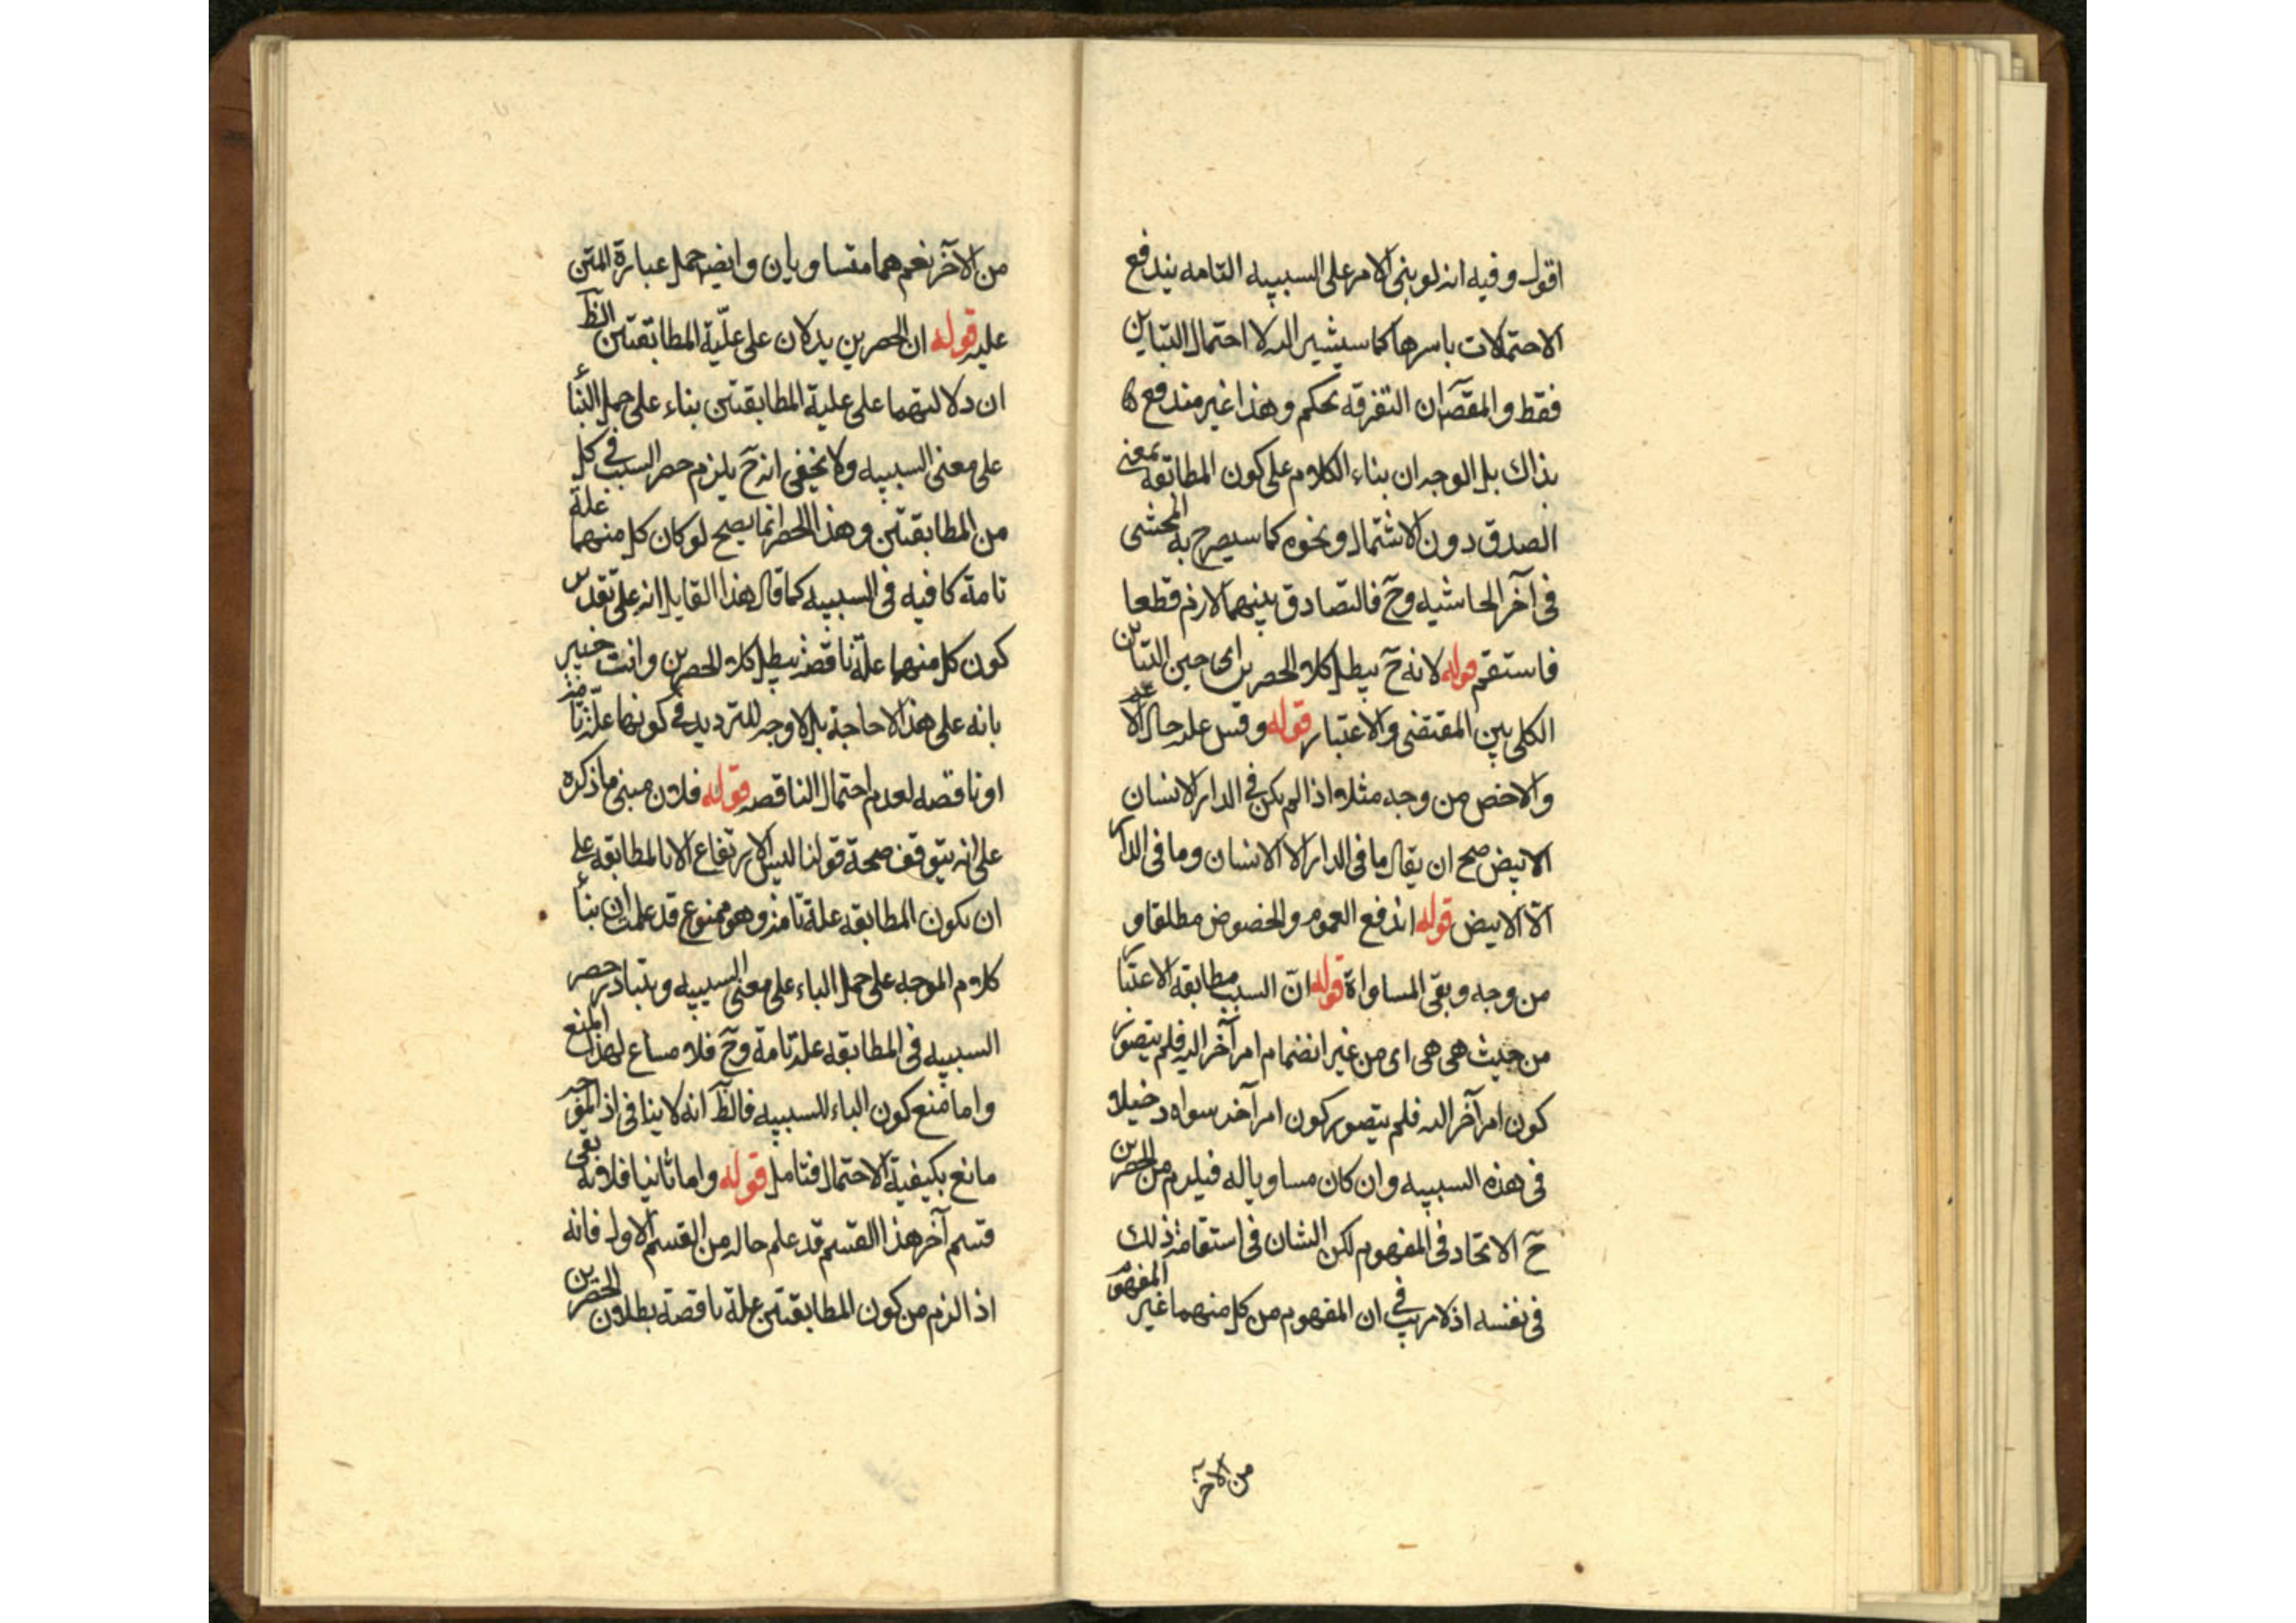 اقول وفيه انه لو بنى الامر على السببيه التامه يندفع
الاحتمالات باسرها كما سيشير اليه لا احتمال التباين
فقط والمقصٓ ان التفرقه تحكم وهذا غير مندفع
بذاك بل الوجه ان بناء الكلام على كون المطابقه بمعنى
الصدق دون الاشتمال ونحوه كما سيصرح به المحشى
فى آخر الحاشيه وحٓ فالتصادق بينهما لازم قطعا
فاستقم قوله لانه حٓ يبطل كلا الحصرين اى حين التباين
الكلى بين المقتضى والاعتبار قوله وقس عليه حال الاعم
والاخص من وجه مثلا اذا لم يكن فى الدار الا الانسان
الابيض صح ان يقال ما فى الدار الا الانسان وما فى الدار
الا الابيض قوله اندفع العموم والخصوص مطلقا و
من وجه وبقى المساواة قوله انّ السبب مطابقه الاعتبار
من حيث هى هى اى من غير انضمام امر آخر اليه فلم يتصور
كون امر آخر اليه فلم يتصور كون امر آخر سواه دخيلا
فى هذه السببيه وان كان مساويا له فيلزم من الحصرين
حٓ الاتحاد فى المفهوم لكن الشان فى استقامة ذلك
فى نفسه اذ لا ريب فى ان المفهوم من كل منهما غير المفهوم
من الآخر
من الآخر نعم هما متساويان وايضا حمل عبارة المتن
عليه قوله ان الحصرين يدلان على علّية المطابقتين الظٓ
ان دلالتهما على علية المطابقتين بناء على حمل الباء
على معنى السببيه ولا يخفى انه حٓ يلزم حصر السبب فى كل
من المطابقتين وهذا الحصر انما يصح لو كان كل منهما علة
تامة كافيه فى السببيه كما قال هذا القايل انه على تقدير
كون كل منهما علة ناقصة يبطل كلا الحصرين وانت خبير
بانه على هذا لا حاجة بل لا وجه للترديد فى كونها علة تامة
او ناقصه لعدم احتمال الناقصه قوله فلان مبنى ما ذكره
على انه يتوقف صحة قولنا ليس الارتفاع الا بالمطابقه على
ان يكون المطابقه علة تامة وهو ممنوع قد علمت ان بناء
كلام الموجه على حمل الباء على معنى السببيه ويتبادر حصر
السببيه فى المطابقه علة تامة وحٓ فلا مساغ لهذا المنع
واما منع كون الباء للسببيه فالظٓ انه لا ينافى اذ الموجه
مانع يكيفية الاحتمال فتامل قوله واما ثانيا فلانه بقى
قسم آخر هذا القسم قد علم حاله من القسم الاول فانه
اذا لزم من كون المطابقتين علة ناقصة بطلان الحصرين